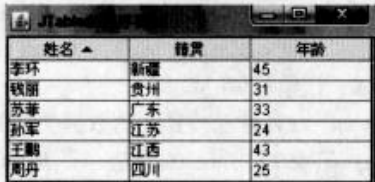 JTable
姓名 籍贯 年龄
李环 新疆 45
钱丽 贵州 31
苏菲 广东 33
孙军 江苏 24
王鹏 江西 43
周丹 四川 25